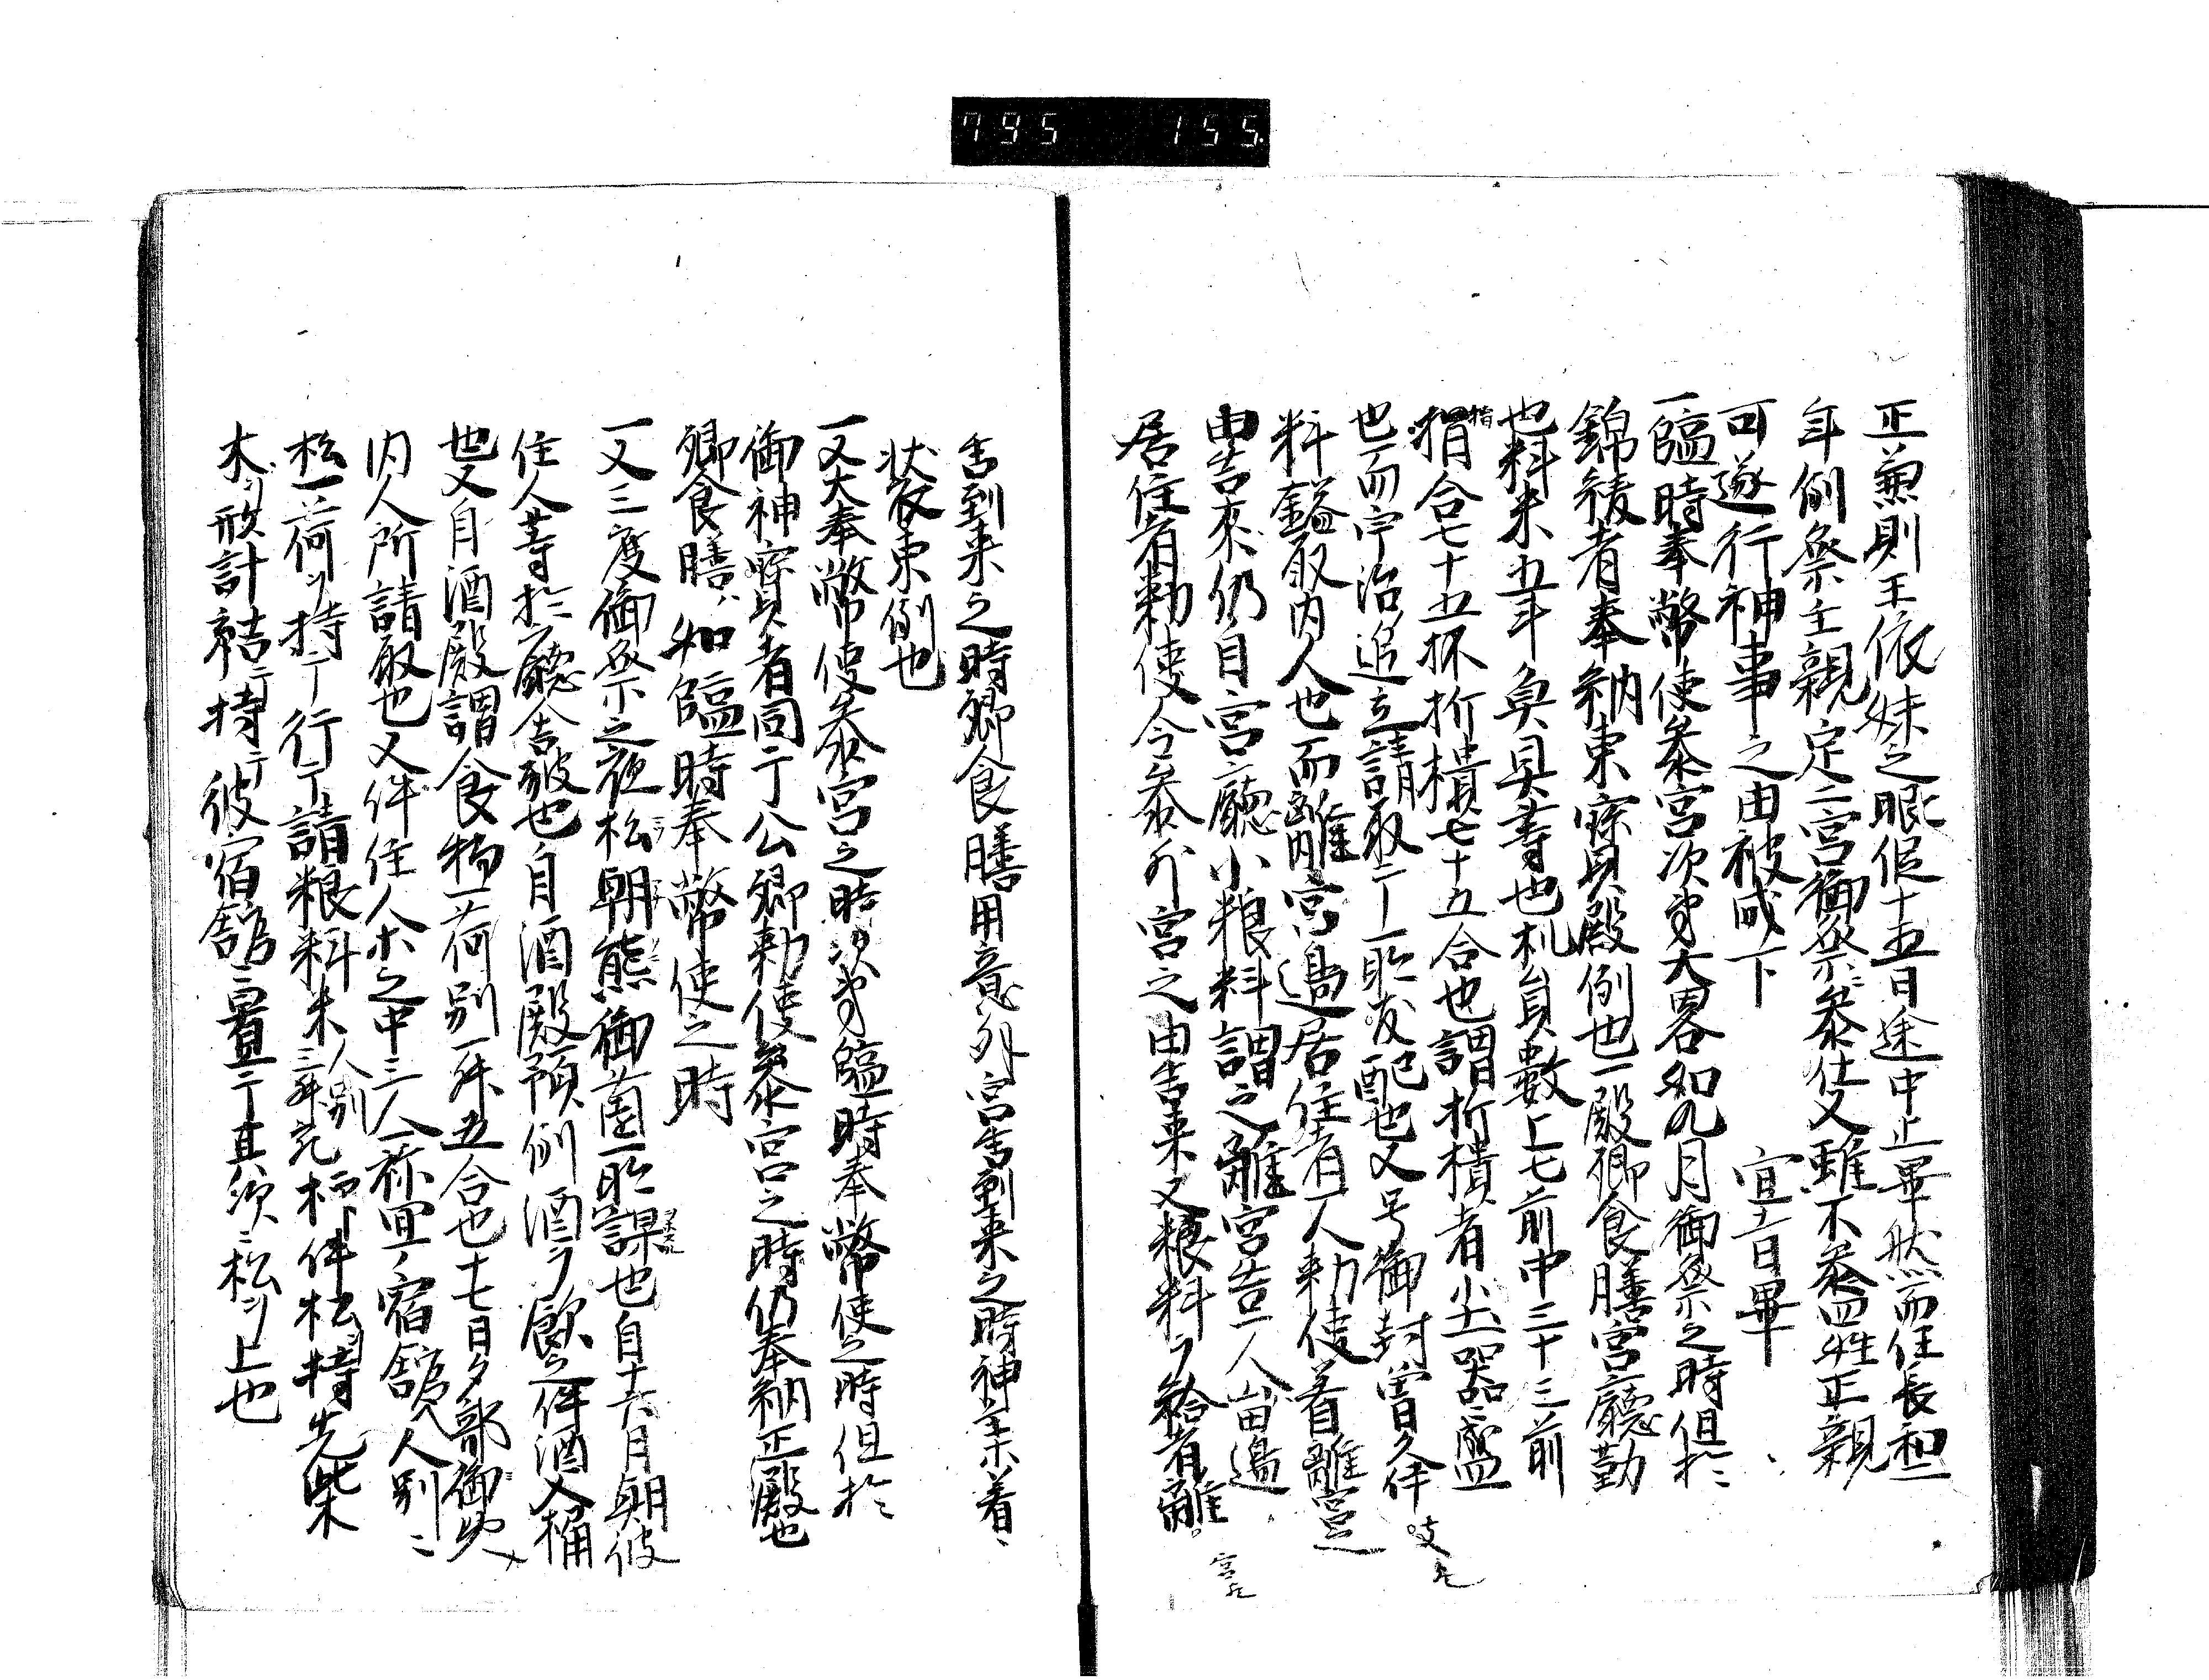 795 155.
正兼則王依妹之暇假十五日途中止畢然而任長和二
年例祭主親定二宮御祭ニ参仕又雖不参四姓正親
可遂行神事之由被成下　宣旨畢
一臨時奉幣使参宮次第大畧如九月御祭之時但於
錦綾者奉納東寳殿例也一殿卿食膳宮廳勤
也料米五斗魚具等也机員數上七前中三十三前
指
捐合七十五杯折樻七十五合也謂折樻者小土器ニ盛
也而宇治追立請取テ一所ニ配也又号御封嘗久件
支歟
料鎰取内人也而離宮邊居住者一人勅使着離宮之
由告來仍自宮廳小粮料謂之離宮告一人當邊
居住者勅使今参外宮之由告来又粮料ヲ給者離
宮歟
告到来之時卿食膳用意外宮告到来之時神主着
状取束例也
一又大奉幣使参宮之時次第臨時奉幣使之時但於
御神寳者同テ公卿勅使参宮之時仍奉納正殿也
卿食膳ハ如臨時奉幣使之時
一又三度御祭之夜松朝熊御薗所課也自十六月朝彼
住人等於一廳舍破也自酒殿預例酒ヲ飲之件酒入桶
也又自酒殿謂食物一荷別一斗五合也十七日夕部御火
内人所請取也又件住人等之中三人祢宜ノ宿舘ニ人別ニ
松一荷ヲ持テ行テ請粮料米人別三升充柄件松ヲ持先柴
木ヲ形計結テ持テ彼宿舘ニ置テ其次ニ松ヲ上也